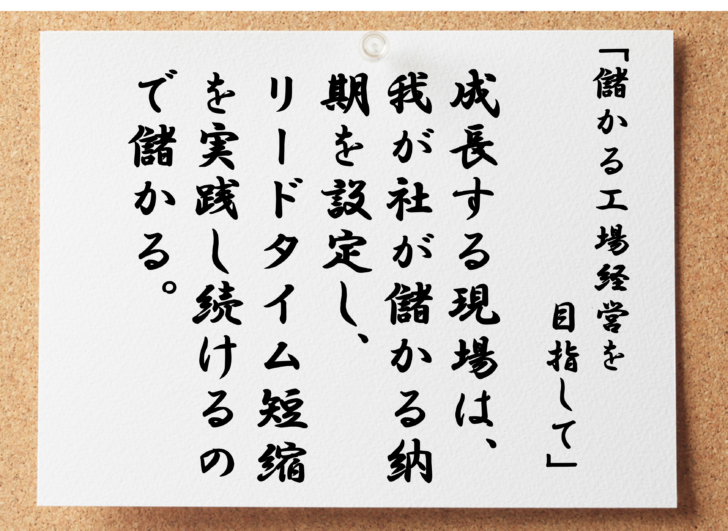 「儲かる工場経営を
目指して」
成長する現場は、
我が社が儲かる納
期を設定し、
リードタイム短縮
を実践し続けるの
で儲かる。